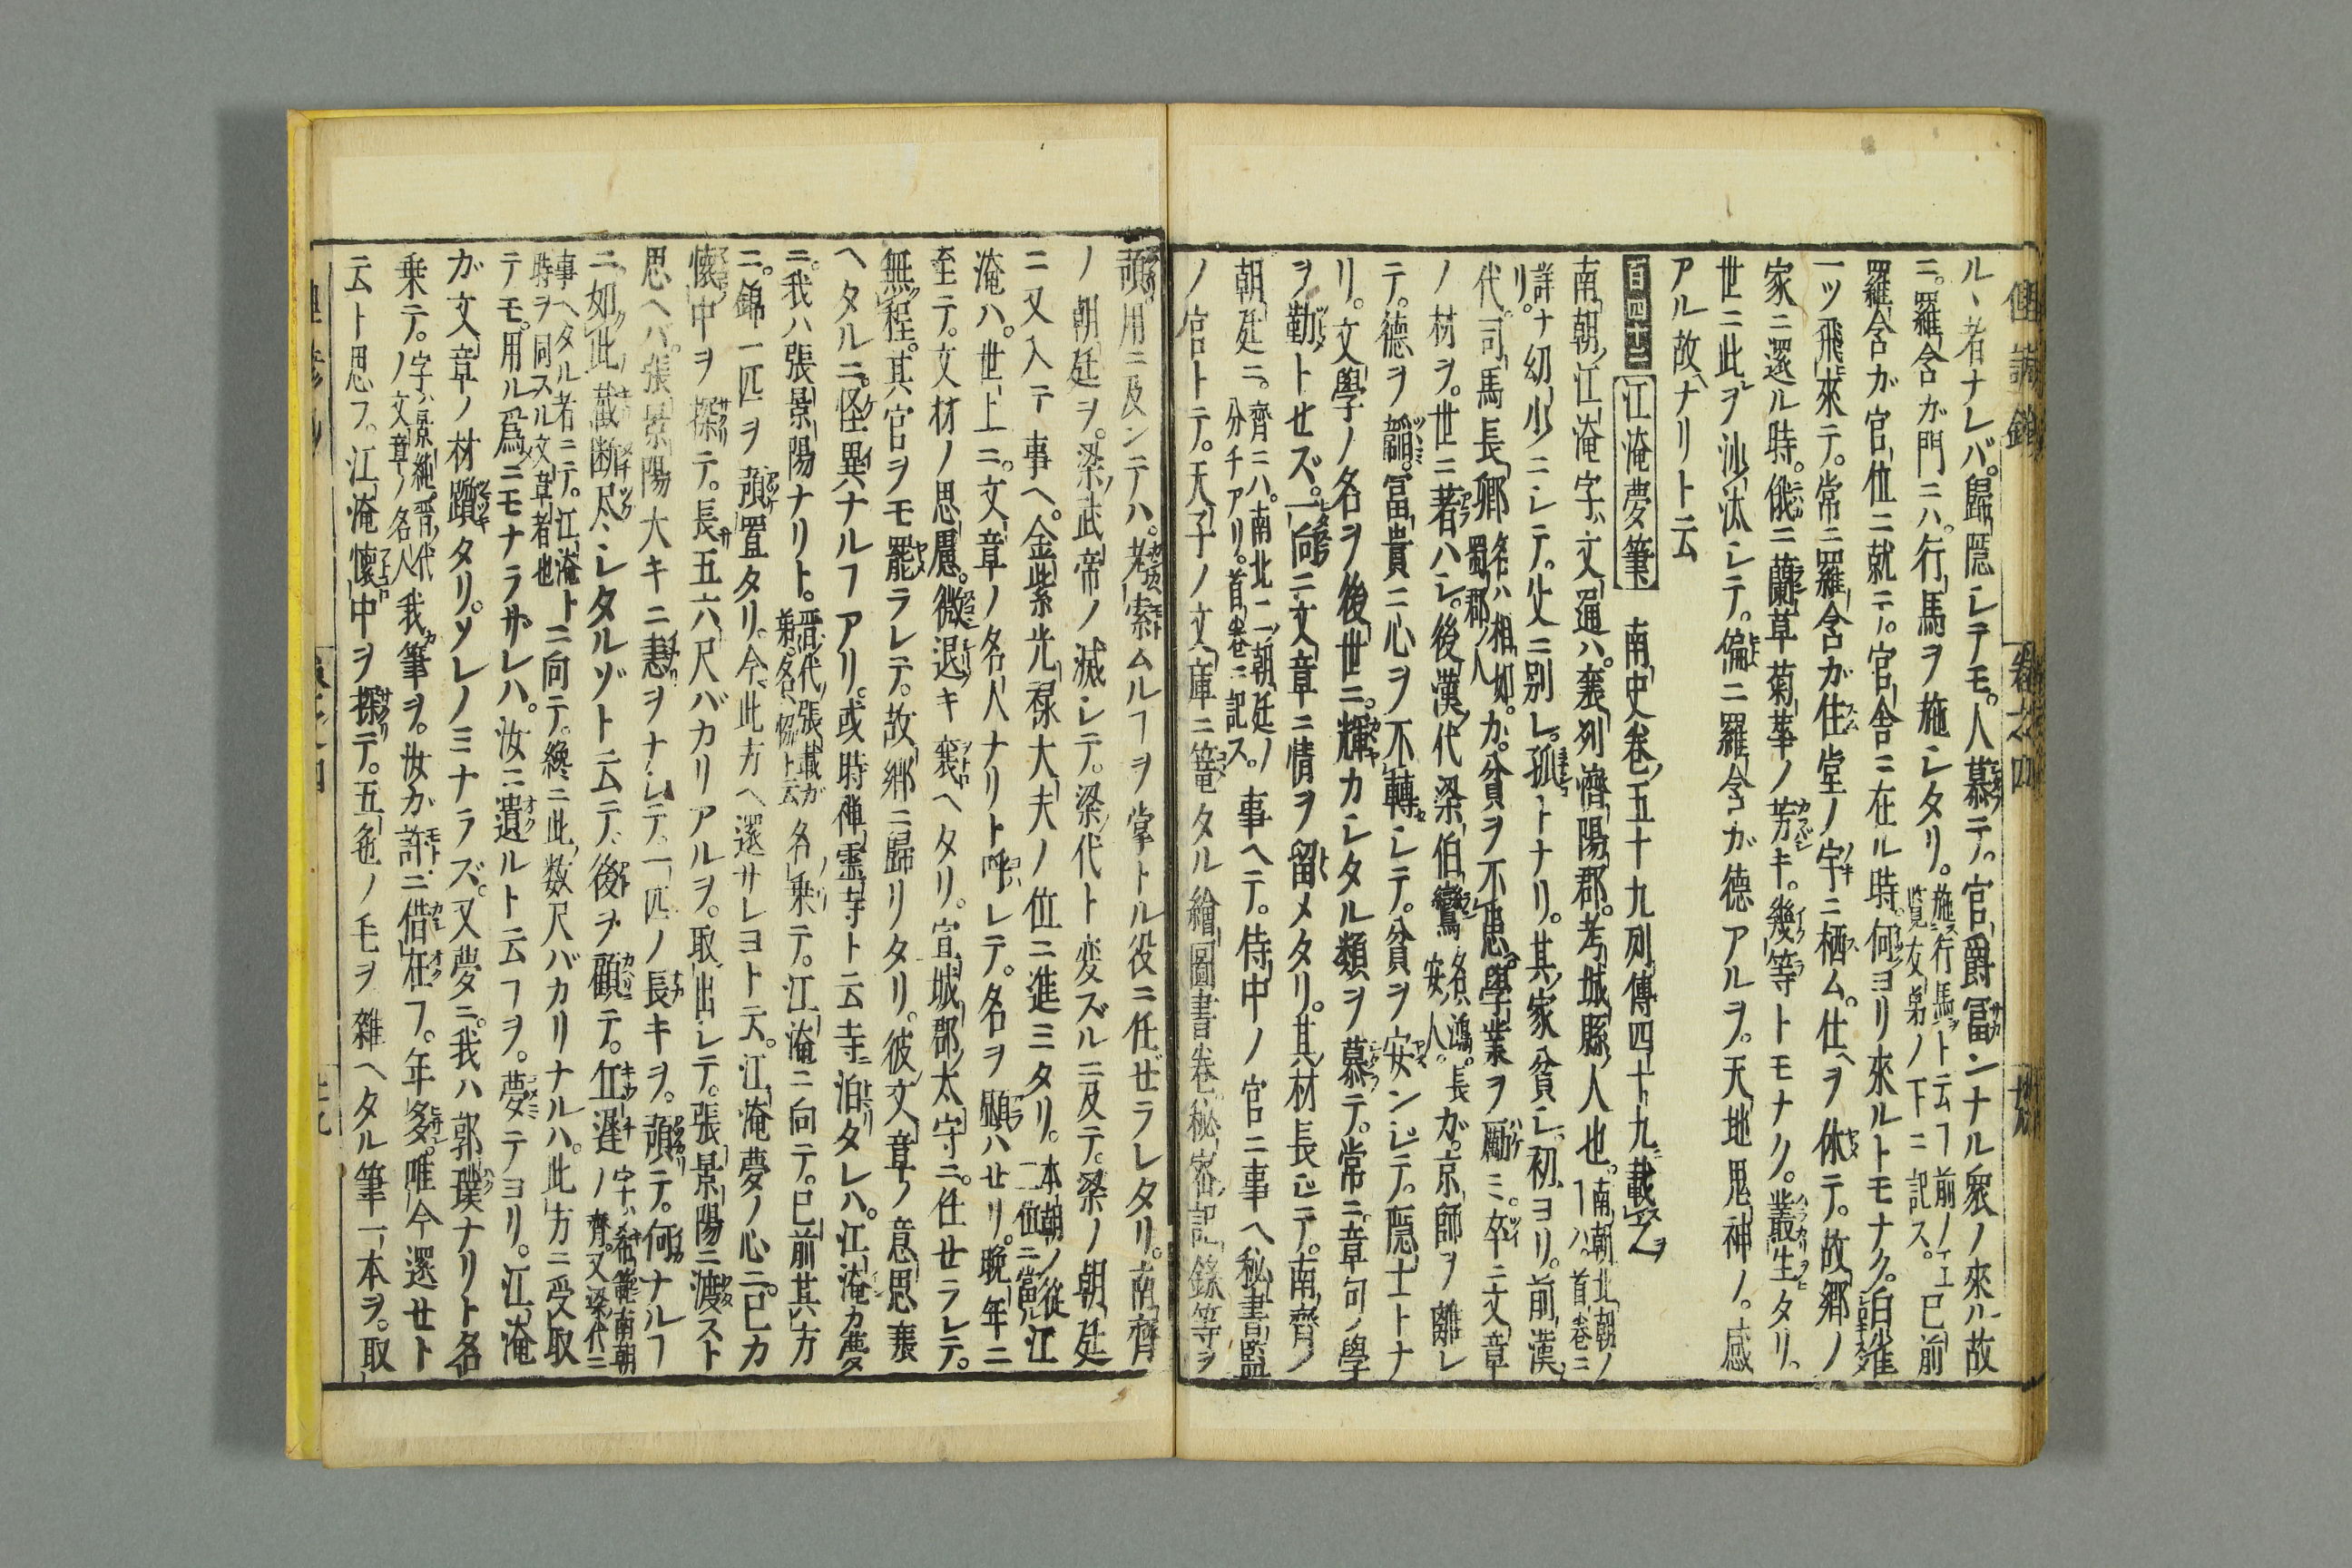 卷之四
ルヽ者ナレバ。歸隱レテモ。人慕テ。官爵冨ンナル衆ノ來ル故
ニ。羅含ガ門ニハ。行馬ヲ施シタリ。施行馬ヲト云フ前ノ已前ノ下ニ記ス。
羅含ガ官位ニ就ニテ。官舎ニ在ル時。何ヨリ來ルトモナク。白雀
一ツ飛來テ。常ニ羅含ガ住堂ノ宇ニ栖ム。仕ヘヲ休テ。故郷ノ
家ニ還ル時。俄ニ蘭草菊華ノ芳キ。幾等トモナク。叢生タリ。
世ニ此ヲ沙汰シテ。偏ニ羅含ガ德アルヲ。天地鬼神ノ。感
アル故ナリト云
百四十二 江淹夢筆 南史卷五十九列傳四十九載之
南朝江淹字ハ文通ハ。襄列濟陽郡。考城縣ノ人也。南朝北朝ノフハ首卷ニ
詳ナリ。幼少ニシテ。父ニ別レ。孤トナリ。其家貧シ。初ヨリ。前漢ノ
代司馬長卿名ハ相如。蜀郡ノ人カ。貧ヲ不患。學業ヲ勵ミ。卒ニ文章
ノ材ヲ。世ニ著ハシ。後漢ノ代梁伯鸞名ハ鴻。長安ノ人。ガ。京師ヲ離レ
テ。德ヲ韞。冨貴ニ心ヲ不轉シテ。貧ヲ安ンシテ。隱士トナ
リ。文學ノ名ヲ後世ニ。輝カシタル類ヲ慕テ。常ニ章句ノ學
ヲ勤トセズ。一向ニ文章ニ情ヲ留メタリ。其材長シテ。南齊ノ
朝廷ニ。齊ニハ。南北二朝廷ノ分チアリ。首卷ニ記ス。事ヘテ。侍中ノ官ニ事ヘ秘書監
ノ官トテ。天子ノ文庫ニ篭タル繪圖書卷。秘密ノ記錄等ヲ
預用ニ及ンテハ。考索ムルフヲ掌トル役ニ任ゼラレタリ。南齊
ノ朝廷ヲ。梁ノ武帝ノ滅シテ。梁代ト変ズルニ及テ。梁ノ朝廷
ニ又入テ事ヘ。金紫光禄大夫ノ位ニ進ミタリ。本朝ノ從二位ニ當ル江
淹ハ。世上ニ。文章ノ名人ナリト呼レテ。名ヲ顯ハセリ。晩年ニ
至テ。文材ノ思慮。微退キ衰ヘタリ。宣城郡太守ニ。仕セラレテ。
無程。其官ヲモ罷ラレテ。故郷ニ歸リタリ。彼文章ノ意思衰
ヘタルニ。怪異ナルフアリ。或時禅靈寺ト云寺ニ泊タレハ。江淹カ夢
ニ。我ハ張景陽ナリト。晋代ノ張載ガ弟。名ハ協ト云名乗テ。江淹ニ向テ。已前其方
ニ。錦一匹ヲ預置タリ。今此方ヘ還サレヨト云。江淹夢ノ心ニ。己カ
懐中ヲ探テ。長サ五六尺バカリアルヲ。取出シテ。張景陽ニ渡スト
思ヘバ。張景陽大キニ恚ヲナシテ。一匹ノ長キヲ。預テ。何ナルフ
ニ。如此截断尽シタルゾト云テ。後ヲ顧テ。丘遲ノ字ハ希範南朝ノ齊。又梁代ニ
事ヘタル者ニテ。江淹ト時ヲ同スル文章者也ニ向テ。纔ニ此数尺バカリナルハ。此方ニ受取
テモ。用ル爲ニモナラサレハ。汝ニ遺ルト云フヲ。夢テヨリ。江淹
ガ文章ノ材躓タリ。ソレノミナラズ。又夢ニ。我ハ郭璞ナリト名
乗テ。字ハ景純。晋代ノ文章ノ名人我筆ヲ。汝カ許ニ。借在フ。年多。唯今還セト
云ト思フ。江淹懐中ヲ探テ。五色ノ毛ヲ雜ヘタル筆一本ヲ。取